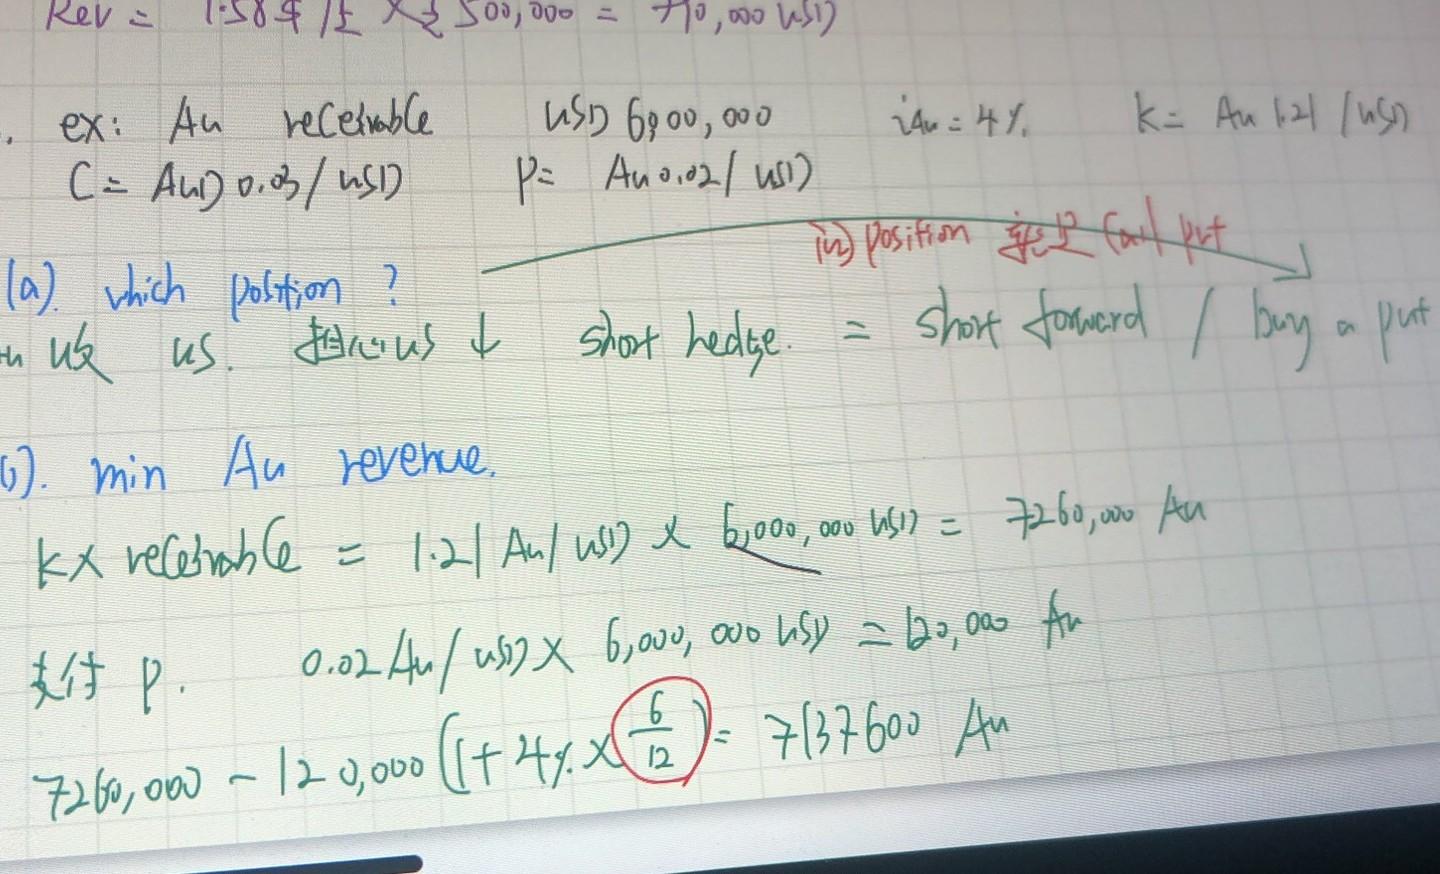 Rev = 1.58 $/£ × £ 500,000 = 790,000 USD
ex: Au receivable USD 6,000,000 iAu = 4% k = Au 1.21 / USD
C = AuD 0.03 / USD P = Au 0.02 / USD
(in) position 就是 Call put
(a). which position ?
收 US. 担心 US ↓ short hedge. = short forward / buy a put
. min Au revenue.
k× receivable = 1.21 Au/USD × 6,000,000 USD = 7260,000 Au
支付 P. 0.02 Au/USD × 6,000,000 USD = 120,000 Au
7260,000 - 120,000 (1 + 4% × 6/12) = 7137600 Au